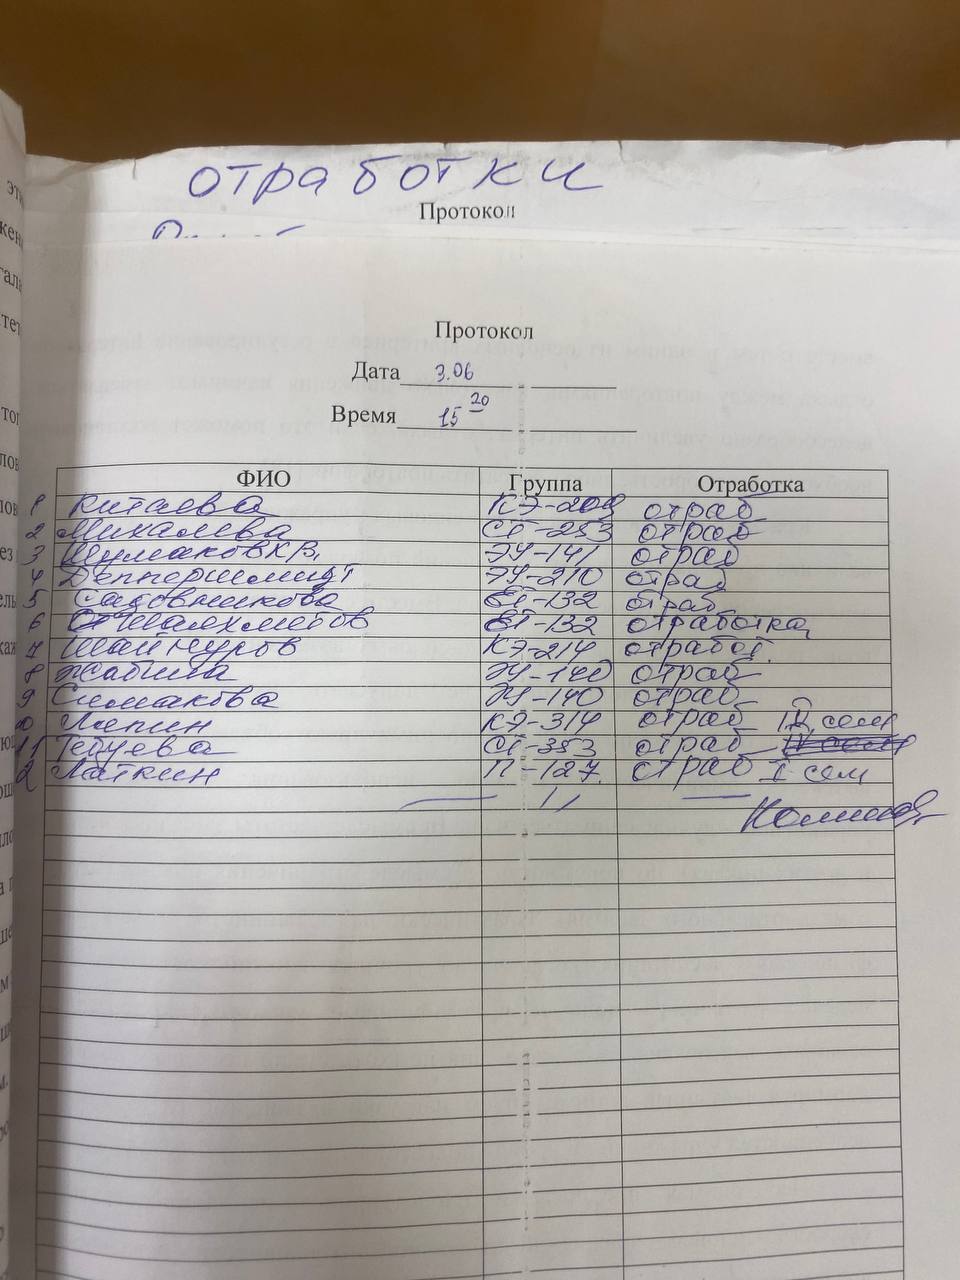 отработки
Протокол
Протокол
Дата 3.06
Время 15 20
ФИО Группа Отработка
1 Китаева КЭ-209 отраб
2 Михалева СТ-253 отраб
3 Шумаков К.В. ЭУ-141 отраб
4 ЭУ-210 отраб
5 Садовникова ЕТ-132 отраб
6 Шаяхметов ЕТ-132 отработка
7 Шайнуров КЭ-214 отработ.
8 Жабина ЭУ-140 отраб
9 Симакова ЭУ-140 отраб
Ляпин КЭ-314 отраб II сем
11 СТ-353 отраб
2 Латкин П-127 отраб I сем